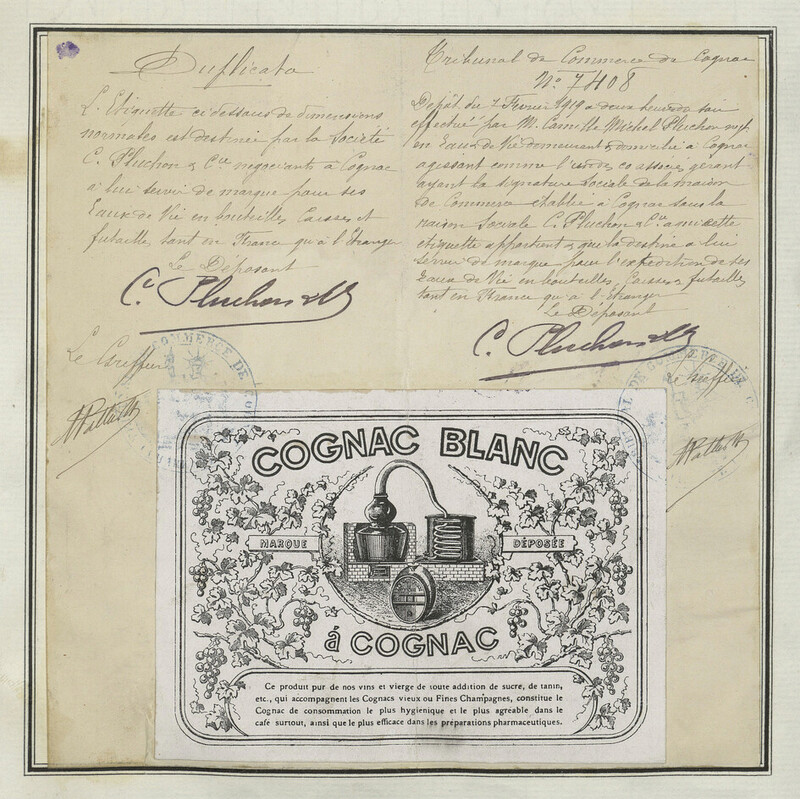 Duplicata
L'Etiquette ci dessous de dimensions
normales est destinée par la Société
C. Pluchon & Cie négociants à Cognac
à lui servir de marque pour ses
Eaux de Vie en bouteilles Caisses et
futailles tant en France qu'à l'Etranger
Le Déposant
C. Pluchon & Cie
Le Greffier
Tribunal de Commerce de Cognac
No 7408
Dépôt du 7 Février 1919 à deux heures du soir
effectué par M. Camille Michel Pluchon négt
en Eaux de Vie demeurant & domicilié à Cognac
agissant comme l'un des co associés gérant
ayant la signature Sociale de la maison
de Commerce établie à Cognac sous la
raison Sociale C. Pluchon & Cie à qui cette
etiquette appartient & que la destine à lui
servir de marque pour l'expédition de ses
Eaux de Vie en bouteilles, Caisses & futailles
tant en France qu'à l'Etranger
Le Déposant
C. Pluchon & Cie
Le Greffier
COMMERCE DE
DE COMMERCE DE C
COGNAC BLANC
MARQUE DÉPOSÉE
à COGNAC
Ce produit pur de nos vins et vierge de toute addition de sucre, de tanin,
etc., qui accompagnent les Cognacs vieux ou Fines Champagnes, constitue le
Cognac de consommation le plus hygiénique et le plus agréable dans le
café surtout, ainsi que le plus efficace dans les préparations pharmaceutiques.